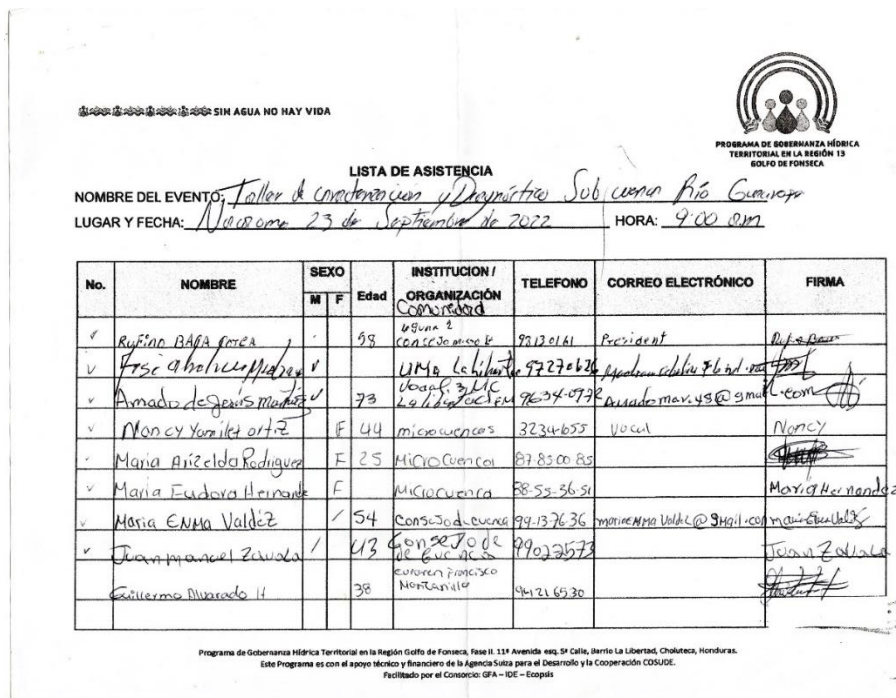 SIN AGUA NO HAY VIDA
PROGRAMA DE GOBERNANZA HÍDRICA
TERRITORIAL EN LA REGIÓN 13
GOLFO DE FONSECA
LISTA DE ASISTENCIA
NOMBRE DEL EVENTO: Taller de y Diagnóstico Sub cuenca Río
LUGAR Y FECHA: 23 de Septiembre de 2022 HORA: 9:00 am
No. NOMBRE SEXO M F Edad INSTITUCION / ORGANIZACIÓN Comunidad TELEFONO CORREO ELECTRÓNICO FIRMA
Rufino 58 President
José UMA 97270626
Amado de Jesus 73 Vocal 3 9634-0972 gmail.com
Nancy Yamilet ortiz F 44 microcuencas 3234-1655 vocal Nancy
Maria Arizelda Rodriguez F 25 MicroCuenca 87-85 00 85
Maria Eudora F Microcuenca 88-55-36-51 Maria Hernandez
Maria ENMA Valdéz / 54 Consejo de cuenca 99-13-76-36
Juan manuel Zavala / 43 Consejo de de Cuenca 99022573 Juan Zavala
Guillermo Alvarado H 38 Francisco 94216530
Programa de Gobernanza Hídrica Territorial en la Región Golfo de Fonseca, Fase II. 11ª Avenida esq. 5ª Calle, Barrio La Libertad, Choluteca, Honduras.
Este Programa es con el apoyo técnico y financiero de la Agencia Suiza para el Desarrollo y la Cooperación COSUDE.
Facilitado por el Consorcio: GFA – IDE – Ecopsis